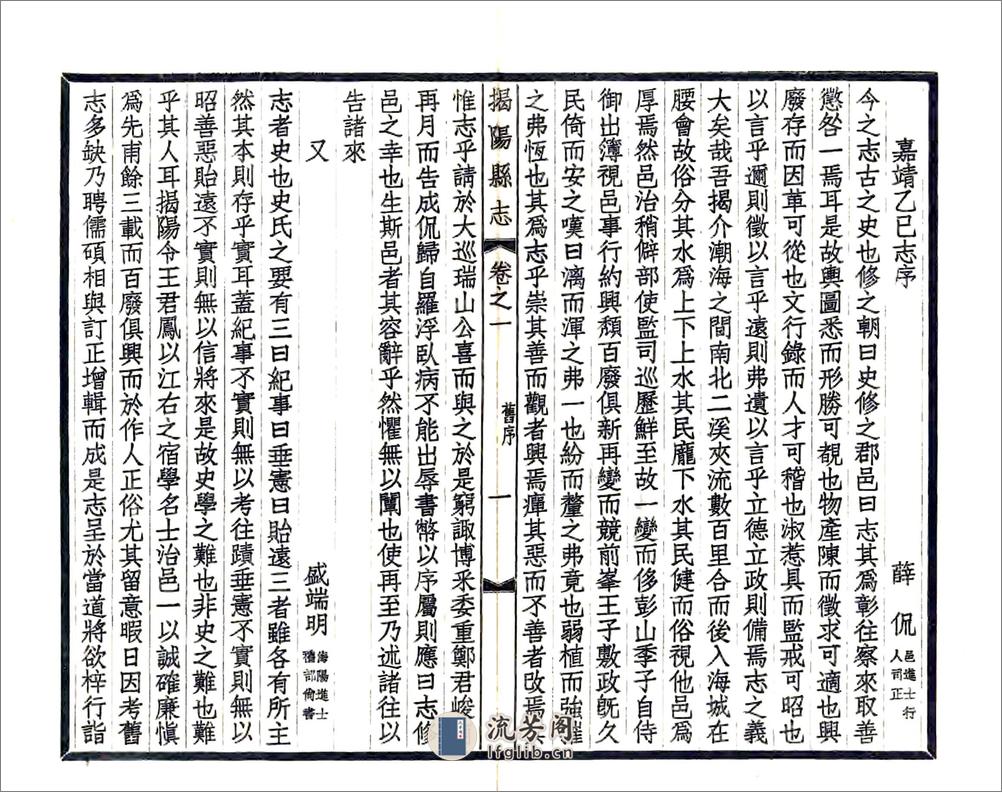 嘉靖乙巳志序
薛侃 邑進士行
人司正
今之志古之史也修之朝曰史修之郡邑曰志其為彰往察來取善
懲咎一焉耳是故輿圖悉而形勝可覩也物產陳而徵求可適也興
廢存而因革可從也文行錄而人才可稽也淑惹具而監戒可昭也
以言乎邇則徵以言乎遠則弗遺以言乎立德立政則備焉志之義
大矣哉吾揭介潮海之間南北二溪夾流數百里合而後入海城在
腰會故俗分其水為上下上水其民龐下水其民健而俗視他邑為
厚焉然邑治稍僻部使監司巡歷鮮至故一變而侈彭山季子自侍
御出簿視邑事行約興頹百廢俱新再變而競前峯王子敷政旣久
民倚而安之嘆曰漓而渾之弗一也紛而釐之弗竟也弱植而強摧
之弗恆也其為志乎崇其善而觀者興焉癉其惡而不善者改焉
揭陽縣志 卷之一 舊序 一
惟志乎請於大巡瑞山公喜而與之於是窮諏博釆委重鄭君峻
再月而告成侃歸自羅浮臥病不能出辱書幣以序屬則應曰志修
邑之幸也生斯邑者其容辭乎然懼無以闡也使再至乃述諸往以
告諸來
又
盛端明 海陽進士
禮部尙書
志者史也史氏之要有三曰紀事曰垂憲曰貽遠三者雖各有所主
然其本則存乎實耳蓋紀事不實則無以考往蹟垂憲不實則無以
昭善惡貽遠不實則無以信將來是故史學之難也非史之難也難
乎其人耳揭陽令王君鳳以江右之宿學名士治邑一以誠確廉愼
為先甫餘三載而百廢俱興而於作人正俗尤其留意暇日因考舊
志多缺乃聘儒碩相與訂正增輯而成是志呈於當道將欲梓行詣
流芳阁
lfglib.cn